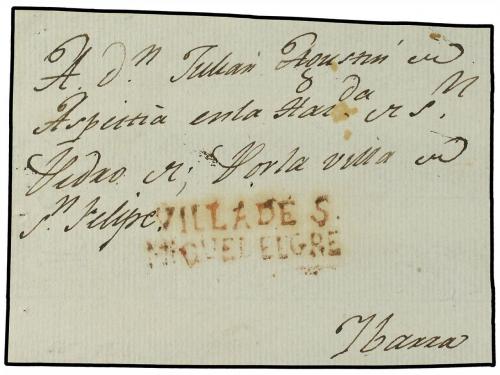 A. D.ⁿ Julian Agustin de
Aspeitia en la Haz.da de S.n
Pedro &; Por la villa de
S.n Felipe.
VILLA DE S.
MIGUEL EL GRE
Ibarra